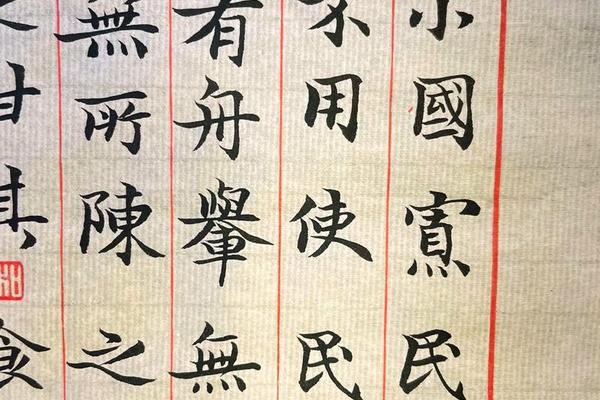 小國寡民
不用使民
有舟轝無
無所陳之
之甘其食